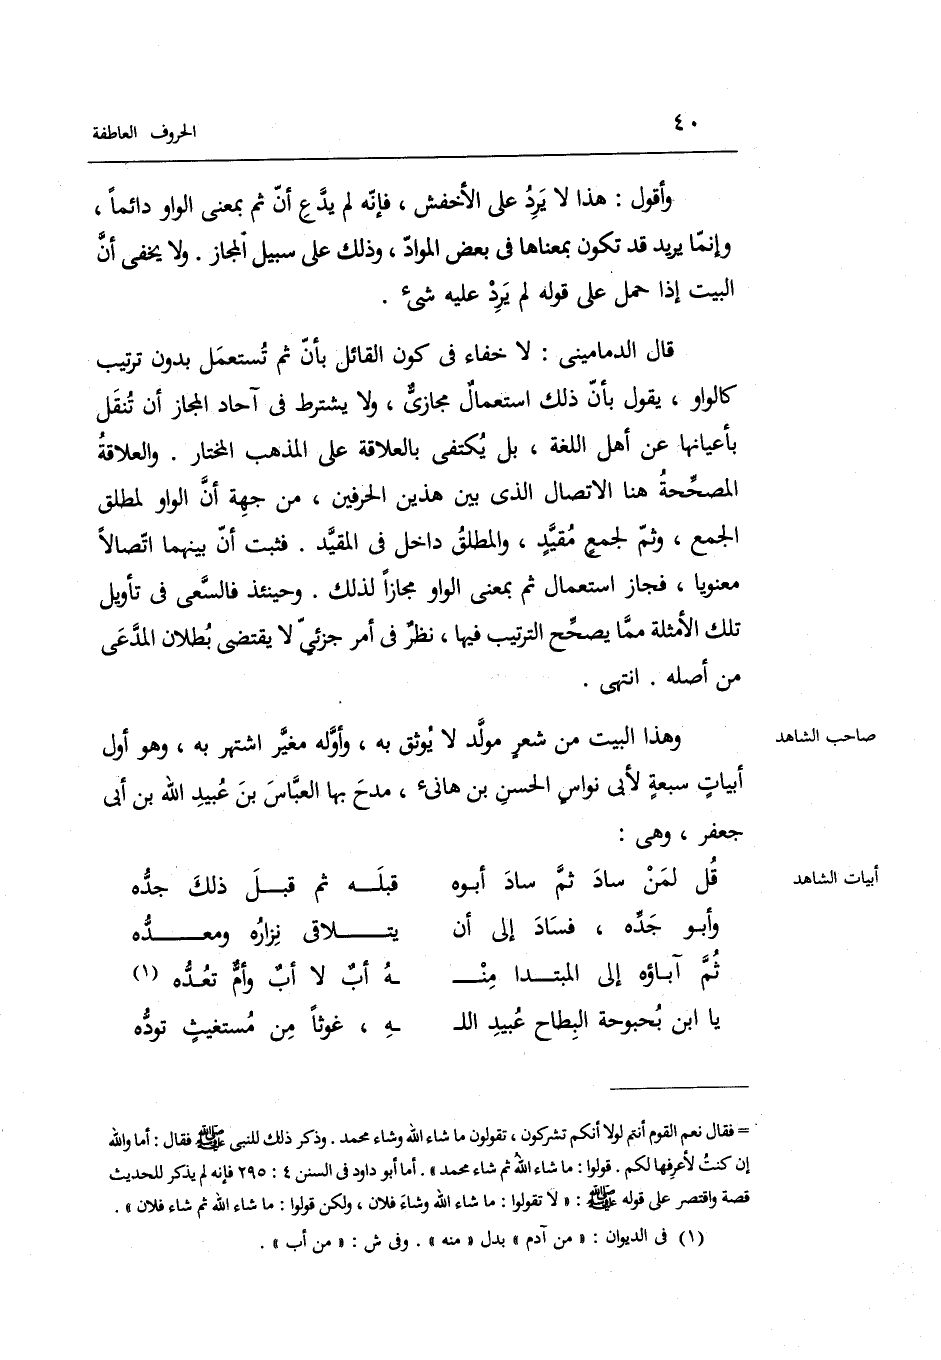 ٤٠
الحروف العاطفة
وأقول : هذا لا يَرِدُ على الأخفش ، فإنّه لم يدَّعِ أنّ ثم بمعنى الواو دائماً ،
وإنمّا يريد قد تكون بمعناها فى بعض الموادّ ، وذلك على سبيل المجاز . ولا يخفى أنَّ
البيت إذا حمل على قوله لم يَرِدْ عليه شىء .
قال الدمامينى : لا خفاء فى كون القائل بأنّ ثم تُستعمَل بدون ترتيب
كالواو ، يقول بأنّ ذلك استعمالٌ مجازىٌّ ، ولا يشترط فى آحاد المجاز أن تُنقَل
بأعيانها عن أهل اللغة ، بل يُكتفى بالعلاقة على المذهب المختار . والعلاقةُ
المصحِّحةُ هنا الاتصال الذى بين هذين الحرفين ، من جهةِ أنَّ الواو لمطلق
الجمع ، وثمّ لجمعٍ مُقيَّدٍ ، والمطلقُ داخل فى المقيَّد . فثبت أنّ بينهما اتّصالاً
معنويا ، فجاز استعمال ثم بمعنى الواو مجازاً لذلك . وحينئذ فالسَّعى فى تأويل
تلك الأمثلة ممَّا يصحِّح الترتيب فيها ، نظرٌ فى أمر جزئيّ لا يقتضى بُطلان المدَّعَى
من أصله . انتهى .
صاحب الشاهد
وهذا البيت من شعرٍ مولَّد لا يُوثق به ، وأوَّله مغيَّر اشتهر به ، وهو أول
أبياتٍ سبعةٍ لأبى نواسٍ الحسنِ بن هانىء ، مدحَ بها العبَّاسَ بنَ عُبيدِ الله بن أبى
جعفر ، وهى :
أبيات الشاهد
قُل لمَنْ سادَ ثمَّ سادَ أبوه قبلَه ثم قبلَ ذلكَ جدُّه
وأبو جَدِّه ، فسَادَ إلى أن يتلاقى نِزارُه ومعدُّه
ثُمَّ آباؤه إلى المبتدا مِنْـ ـهُ أبٌ لا أبٌ وأمٌّ تعُدُّه (١)
يا ابن بُحبوحة البِطاح عُبيدِ اللـ ـهِ ، غوثاً مِن مُستغيثٍ تودُّه
= فقال نعم القوم أنتم لولا أنكم تشركون ، تقولون ما شاء الله وشاء محمد . وذكر ذلك للنبى ﷺ فقال : أما والله
إن كنتُ لأعرفها لكم . قولوا : ما شاء اللهُ ثم شاء محمد » . أما أبو داود فى السنن ٤ : ٢٩٥ فإنه لم يذكر للحديث
قصة واقتصر على قوله ﷺ : « لا تقولوا : ما شاء الله وشاءَ فلان ، ولكن قولوا : ما شاء الله ثم شاء فلان » .
(١) فى الديوان : « من آدم » بدل « منه » . وفى ش : « من أب » .